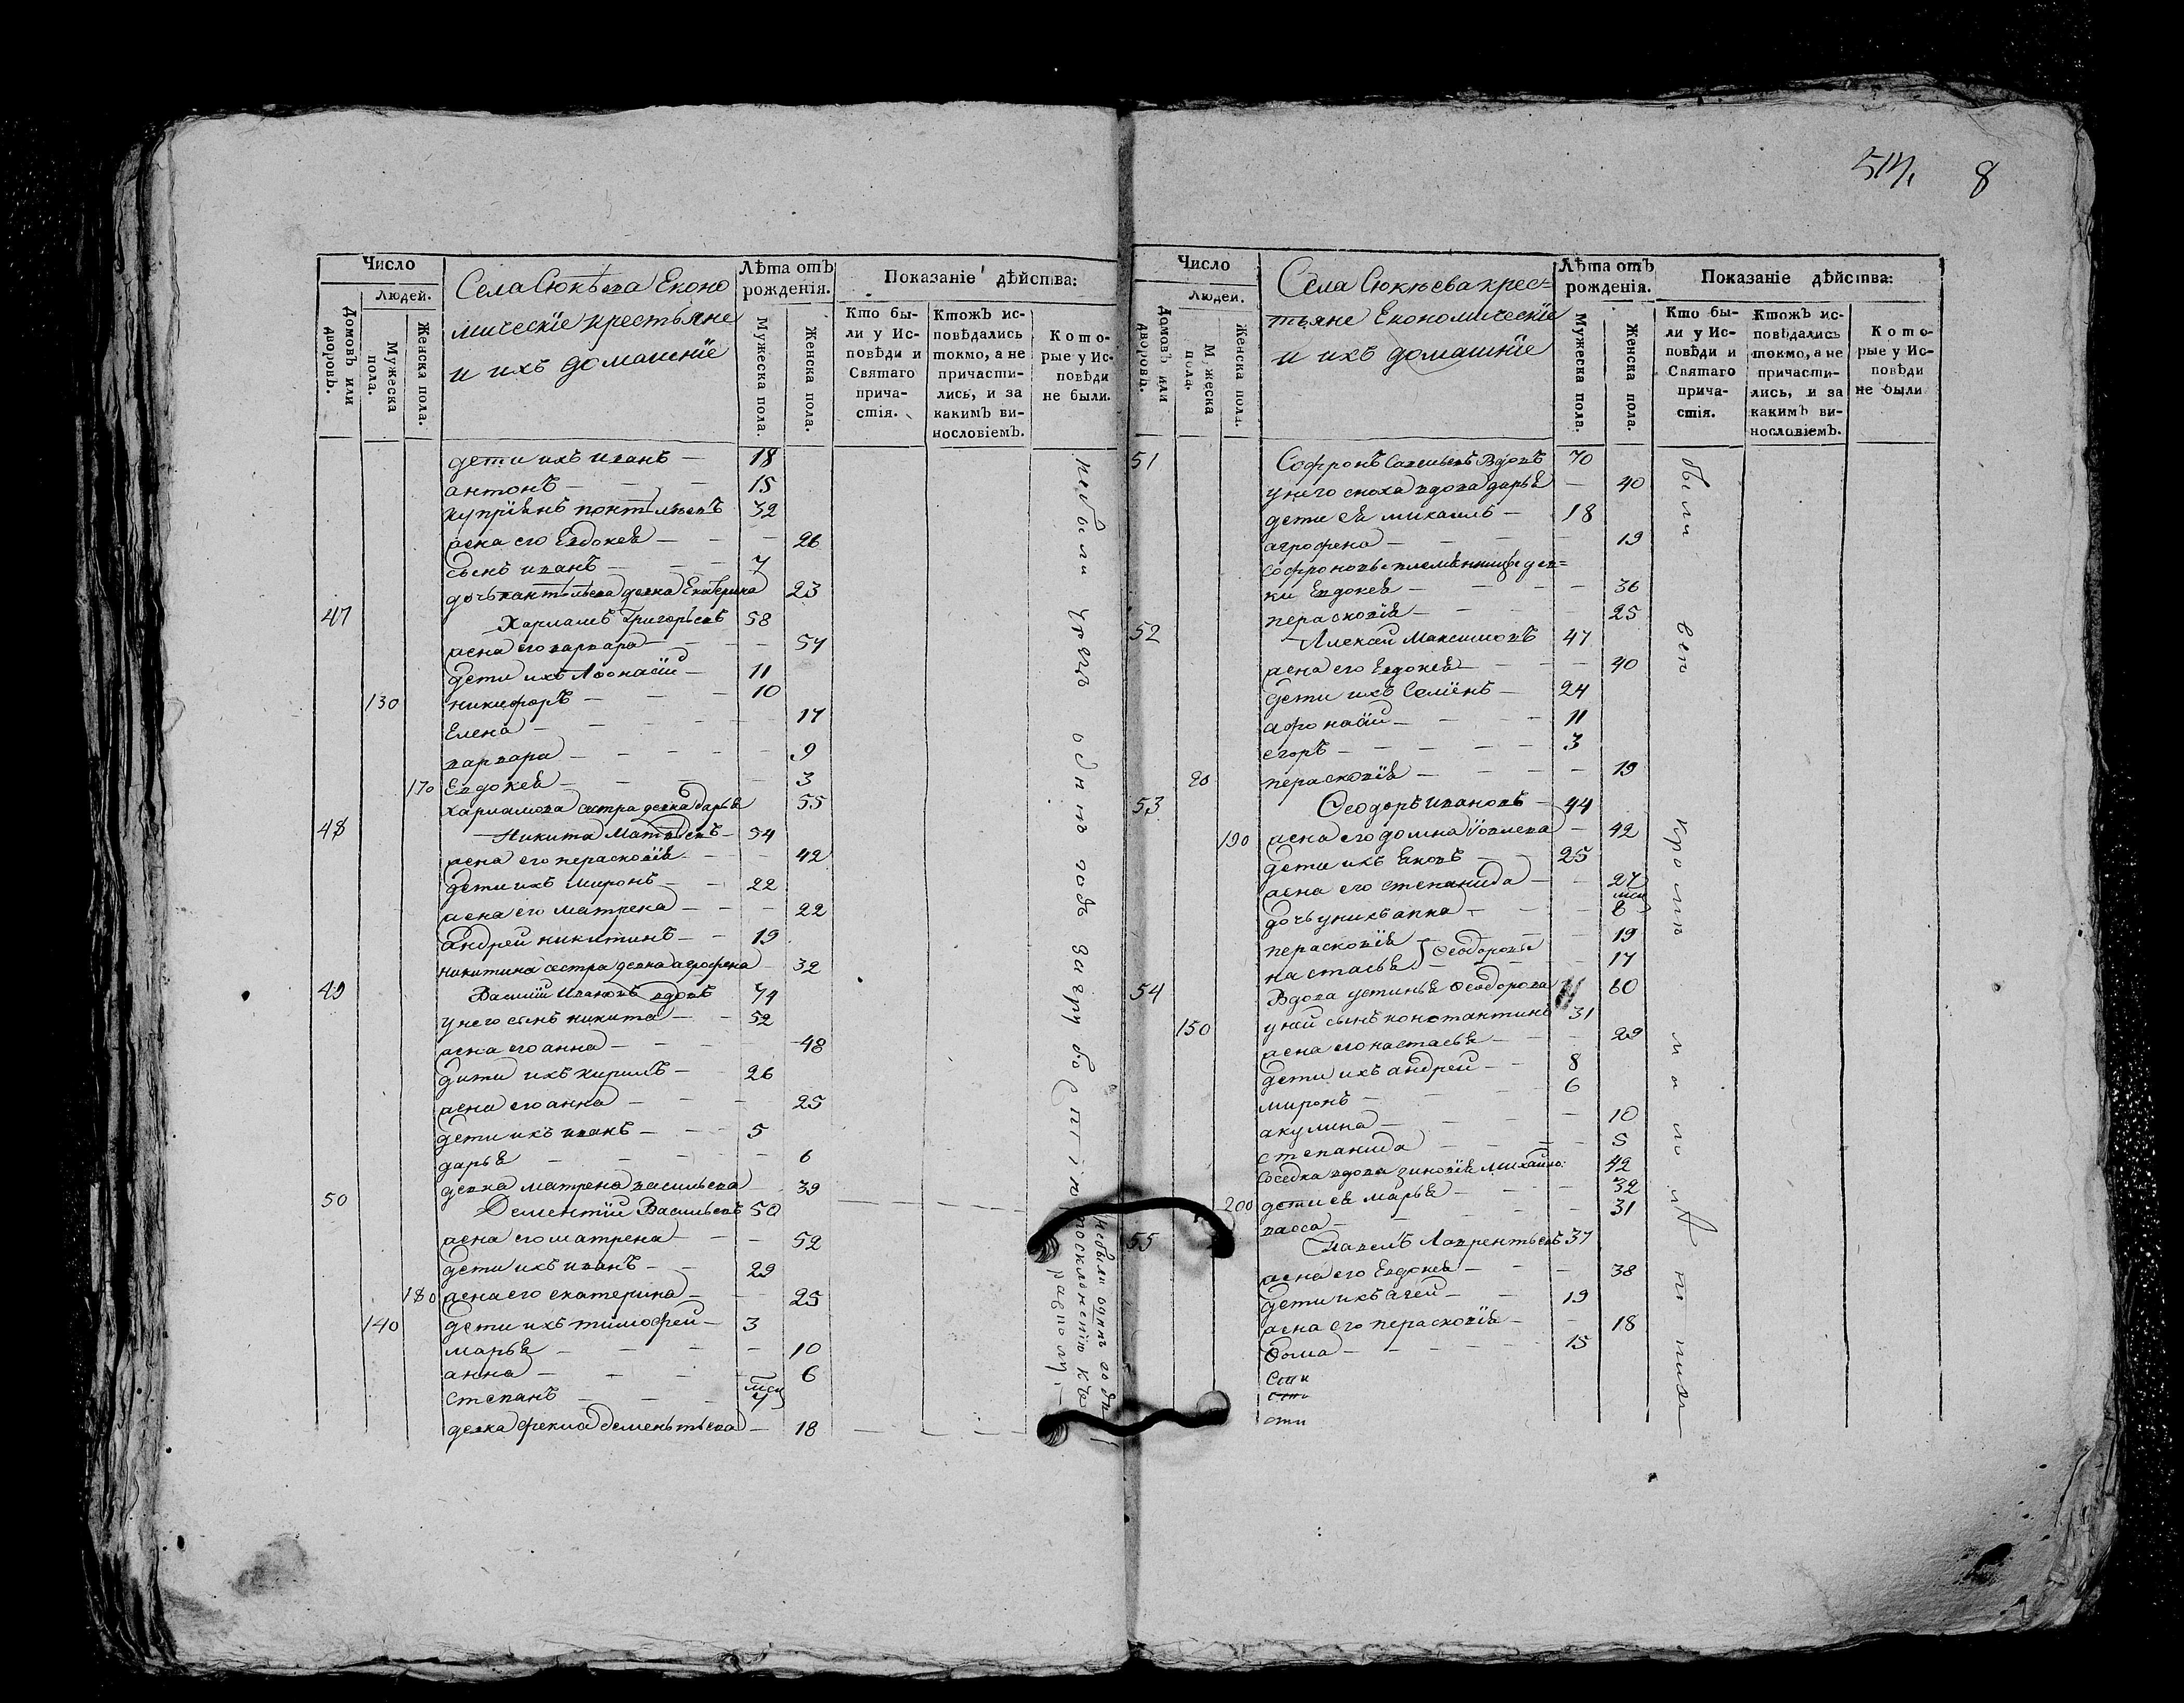 514. 8
Число
Людей.
Домовъ или дворовъ.
Мужеска пола.
Женска пола.
Села Сюкѣева Еконо
мическіе крестьяне
и ихъ домашніе
Лѣта отъ рожденія.
Мужеска пола.
Женска пола.
Показаніе дѣйства:
Кто бы-
ли у Ис-
повѣди и
Святаго
прича-
стія.
Ктожъ ис-
повѣдались
токмо, а не
причасти-
лись, и за
какимъ ви-
нословіемъ.
Кото-
рые у Ис-
повѣди
не были.
дети ихъ иванъ — 18
антонъ — 15
купріянъ 32
жена его Евдокея — 26
сынъ иванъ — 7
дочь девка Екатерина 23
47 Харламъ Григорьевъ 58
жена его варвара — 54
дети ихъ Афонасіи — 11
130 никифоръ — 10
Елена — 17
варвара — 9
170 Евдокея — 3
харламова сестра девка дарья 55
48 Никита Матвеевъ — 54
жена его перасковія — 42
дети ихъ миронъ — 22
жена его матрена — 22
андреи никитинъ — 19
никитина сестра девка агрофена 32
49 Василіи Ивановъ вдовъ 74
у него сынъ никита — 52
жена его анна — 48
дити ихъ кирилъ — 26
жена его анна — 25
дети ихъ иванъ — 5
дарья — 6
девка матрена васильева 39
50 Дементіи Васильевъ 50
жена его матрена — 52
дети ихъ иванъ — 29
180 жена его екатерина — 25
140 дети ихъ тимофеи — 3
марья — 10
анна — 6
степанъ — мсц 4
девка фекла дементьева — 18
небыли чрезъ одинъ годъ
небыли одинъ годъ
по склоненію къ
расколу. —
Число
Людей.
Домовъ или дворовъ.
Мужеска пола.
Женска пола.
Села Сюкѣева крес=
тьяне Економическіе
и ихъ домашніе
Лѣта отъ рожденія.
Мужеска пола.
Женска пола.
Показаніе дѣйства:
Кто бы-
ли у Ис-
повѣди и
Святаго
прича-
стія.
Ктожъ ис-
повѣдались
токмо, а не
причасти-
лись, и за
какимъ ви-
нословіемъ.
Кото-
рые у Ис-
повѣди
не были
51 Софронъ Савельевъ Вдовъ 70
у него сноха вдова дарья — 40
дети ея михаилъ — 18
агрофена — 19
софроновы племянницы дев=
ки Евдокея — 36
перасковія — 25
52 Алексѣи Максимовъ 47
жена его Евдокея — 40
дети ихъ Семенъ — 24
афонасіи — 11
егоръ — 3
перасковія — 19
53 Феодоръ Ивановъ — 44
190 жена его домна Іовлева — 42
дети ихъ яковъ — 25
жена его степанида — 27
дочь у нихъ анна — мсц 8
перасковія — 19
настасья } Феодоровы — 17
54 Вдова устинья Феодорова 60
150 у неи сынъ константинъ 31
жена его настасья — 29
дети ихъ андреи — 8
миронъ — 6
акулина — 10
степанида — 5
соседка вдова зиновія михайло: 42
200 дети ея марья — 32
васса — 31
55 Павелъ Лаврентьевъ 37
жена его Евдокея — 38
дети ихъ агеи — 19
жена его перасковія — 18
Фома — 15
были всѣ кромѣ малолѣтныхъ